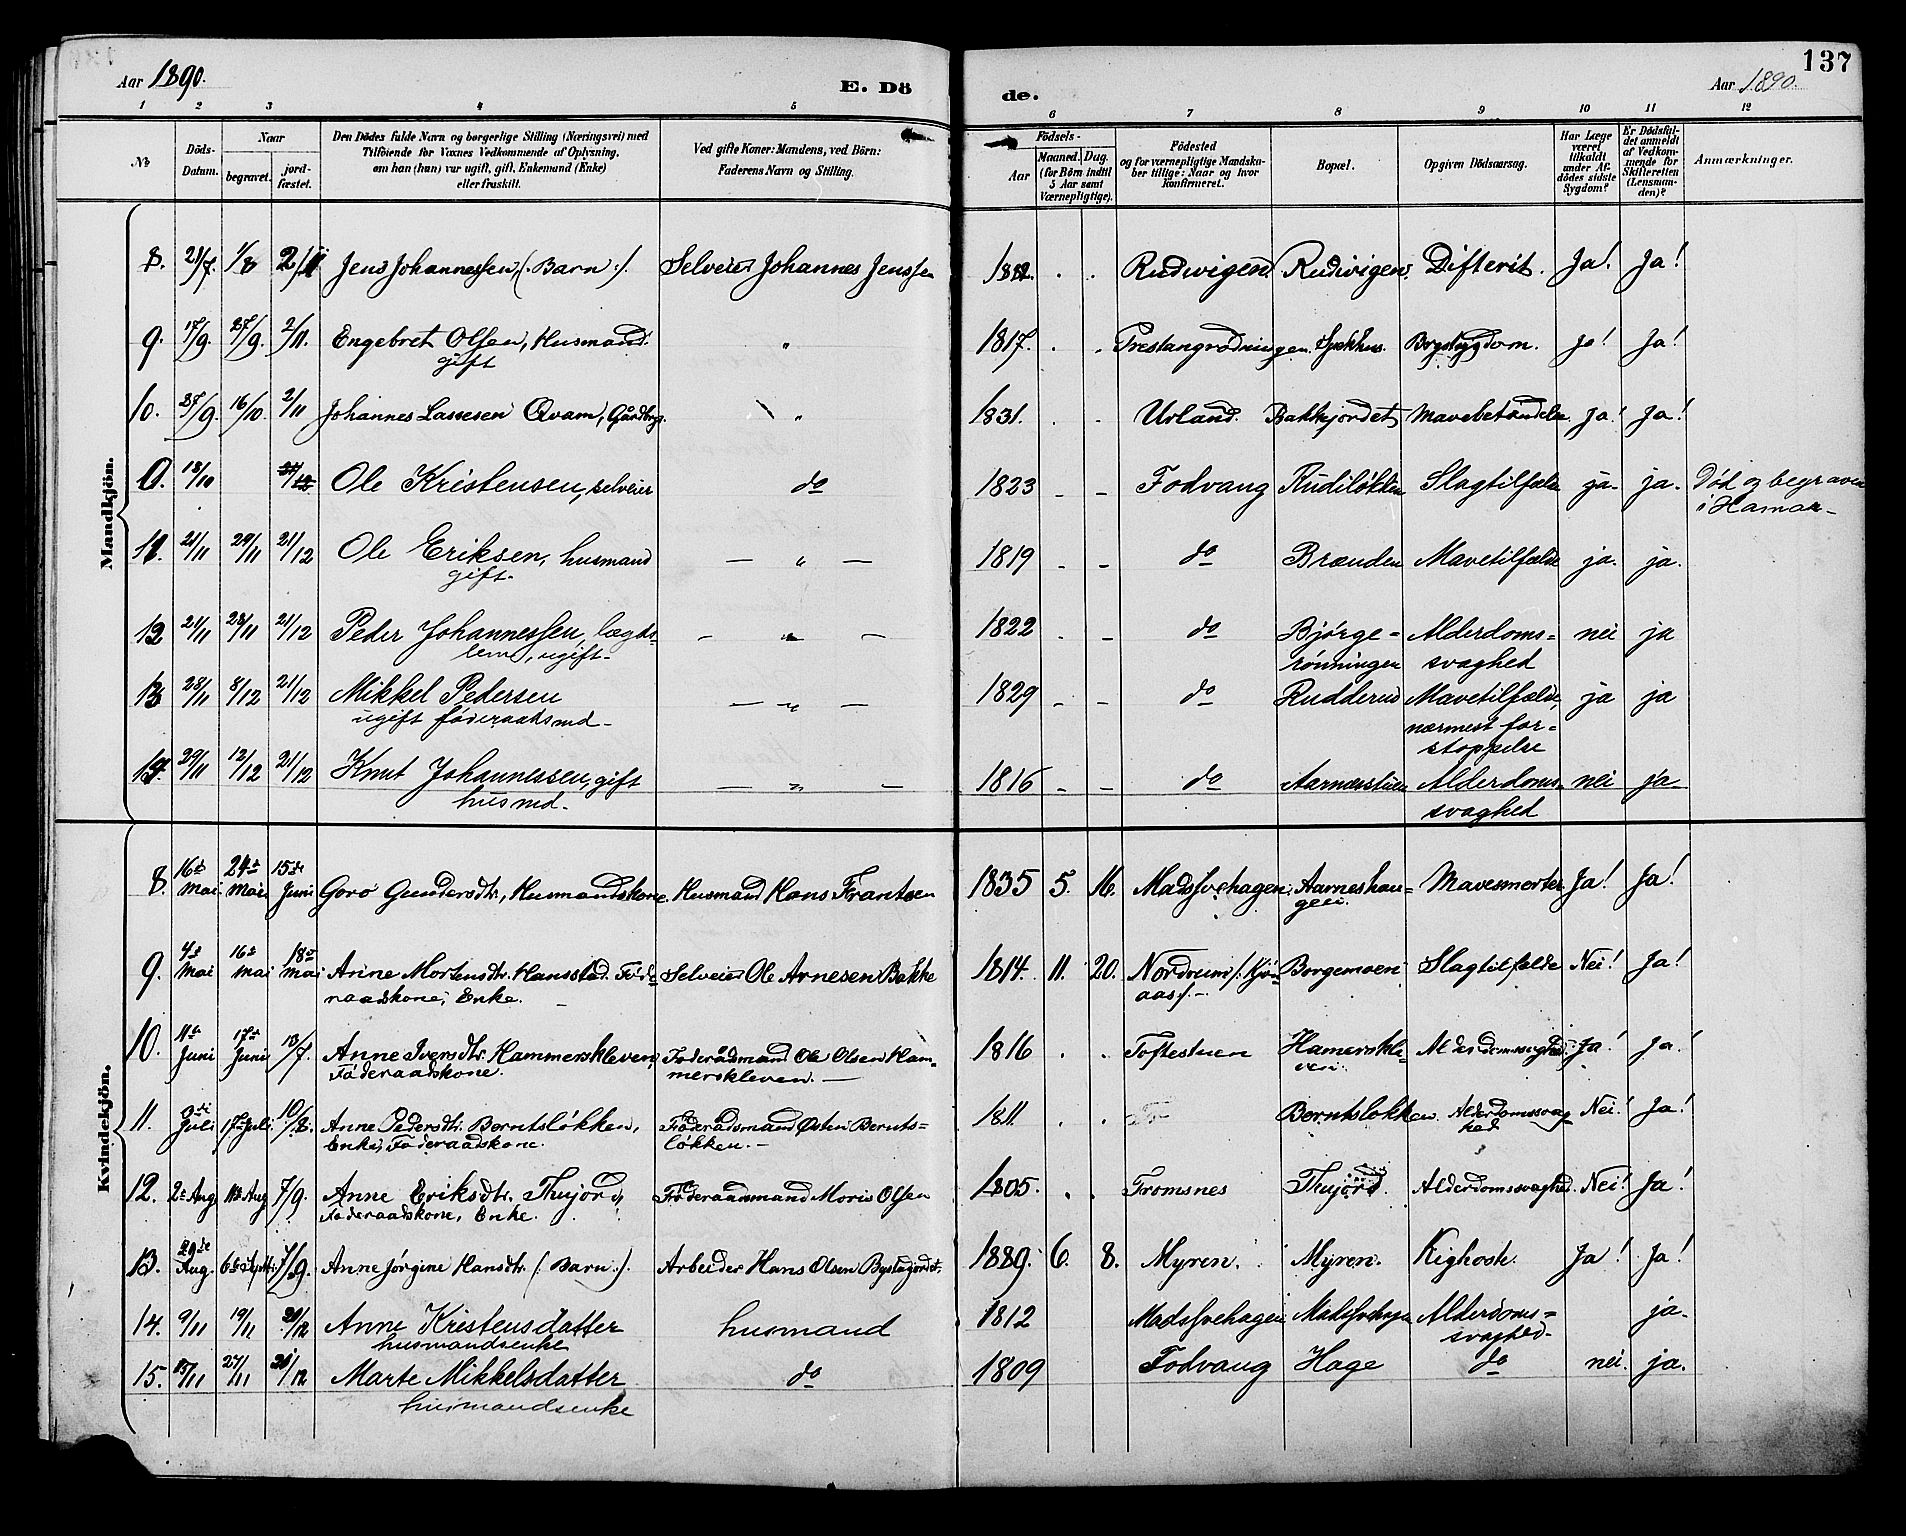 Aar 1890.
E. Dö
de.
137
Aar 1890.
1 2 3 4 5 6 7 8 9 10 11 12
№
Döds-Datum.
Naar
begravet.
jordfæstet.
Den Dödes fulde Navn og borgerlige Stilling (Næringsvei) med
Tilföiende for Voxnes Vedkommende af Oplysning,
om han (hun) var ugift, gift, Enkemand (Enke)
eller fraskilt.
Ved gifte Koner: Mandens, ved Börn:
Faderens Navn og Stilling.
Födsels-
Aar
Maaned. Dag.
(for Börn indtil
5 Aar samt
Værnepligtige).
Födested
og for værnepligtige Mandskaber tillige: Naar og hvor
konfirmeret.
Bopæl.
Opgiven Dödsaarsag.
Har Læge
været
tilkaldt
under Afdödes sidste
Sygdom?
Er Dödsfaldet anmeldt
af Vedkommende for
Skifteretten
(Lensmanden)?
Anmærkninger.
Mandkjön.
8. 21/7. 1/8 2/11 Jens Johannessen, (Barn). Selveier Johannes Jenssen 1882. . . Rudivigen Rudivigen. Difterit. Ja! Ja!
9. 17/9. 27/9. 2/11. Engebret Olsen, Husmand. " 1817. . . Prestangrødningen. Brystsygdom. Ja! Ja!
gift
10. 27/9. 16/10. 2/11 Johannes Lassesen Qvam, Gårdbrg. " 1831. . . Urland. Bakkjordet Mavebetændelse Ja! Ja!
0. 13/10 Ole Kristensen, selveier do 1823 - - Fodvang Rudiløkken Slagtilfælde ja- ja- Död og begraven
i Hamar-
11. 21/11 29/11 21/12 Ole Eriksen, husmand — " — 1819 - - do Brænden Mavetilfælde ja. ja.
gift.
12 21/11 28/11 21/12 Peder Johannessen, lægds- — " — 1822 . - do Bjørge= Alderdoms= nei ja
lem, ugift- rönningen svaghed
13 28/11 8/12 21/12 Mikkel Pedersen — " — 1829 - - do Rudderud Mavetilfælde, ja ja
ugift föderaadsmd. nærmest for=
stoppelse
14. 29/11 12/12 21/12 Knut Johannessen, gift — " — 1816 - - do Aarnæsstuen Alderdoms- nei ja-
husmd. svaghed
Kvindekjön.
8. 16de Mai 24de Mai 15de Juni Goro Gundersdtr., Husmandskone. Husmand Hans Frantsen 1835 5. 16. Madssvehagen. Aarneshau- Mavesmerter Ja! Ja!
gen.
9. 4de Mai 16de Mai 18de Mai Anne Mortensdtr. Hansstad. Föde- Selveier Ole Arnesen Bakke 1814. 11. 20. Nordrum /: Kjön Borgemoen Slagtilfælde Nei! Ja!
raadskone, Enke. aas /.-
10. 4de Juni 17de Juni 13/7. Anne Iversdtr. Hammerskleven, Föderådsmand Ole Olsen Ham- 1816 . . Toftestuen Hamerskle- Alderdomssvaghed Ja! Ja!
Föderaadskone. merskleven. — ven.
11. 9de Juli 17de Juli 10/8. Anne Pedersdtr. Berntsløkken, Föderådsmand Østen Bernts= 1811. . . Berntsløkken. Alderdomssvag- Nei! Ja!
Enke, Föderaadskone. løkken. — hed
12. 2de Aug 11te Aug 7/9. Anne Eriksdtr. Thujord, Föderaadsmand Moris Olsen 1805. . . Fromsnes Thujord. Alderdomssvaghed. Nei! Ja!
Föderaadskone, Enke.
13. 29de Aug. 6te Septbr. 7/9. Anne Jørgine Hansdtr. (Barn). Arbeider Hans Olsen Bystugjordet. 1889. 6. 8. Myren. Myren. Kighoste. Ja! Ja!
14. 9/11 19/11 21/12 Anne Kristensdatter husmand 1812 Madssvehagen Madssvehagen Alderdoms= ja.
husmandsenke svaghed-
15. 15/11 27/11 21/12 Marte Mikkelsdatter do 1809 Fodvang Hage do nei. ja.
husmandsenke